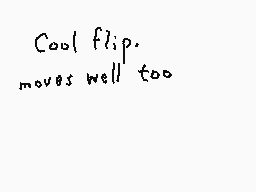 Cool flip.
moves well too